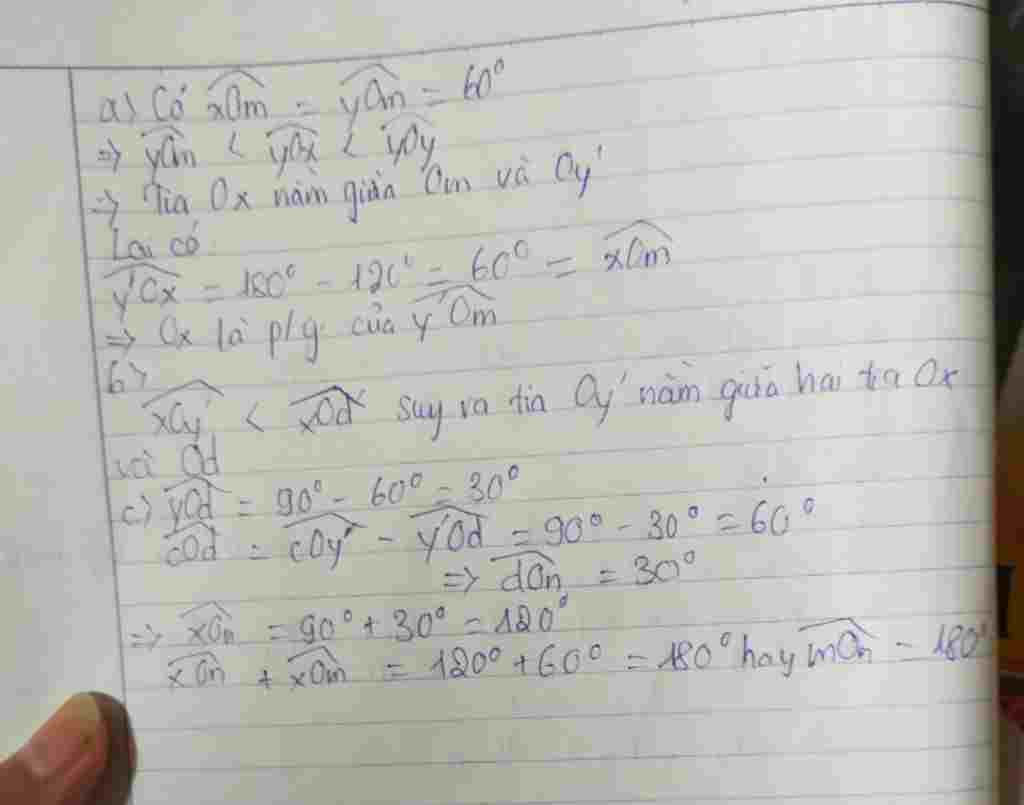 a) Có xOm = yOm = 60°
=> yOm < yOx < yOy'
=> Tia Ox nằm giữa Om và Oy'
Lại có
y'Ox = 180° - 120° = 60° = xOm
=> Ox là p/g của y'Om
b)
xOy' < xOd suy ra tia Oy' nằm giữa hai tia Ox
và Od
c) y'Od = 90° - 60° = 30°
cOd = cOy' - y'Od = 90° - 30° = 60°
=> dOn = 30°
=> xOn = 90° + 30° = 120°
xOn + xOm = 120° + 60° = 180° hay mOn = 180°